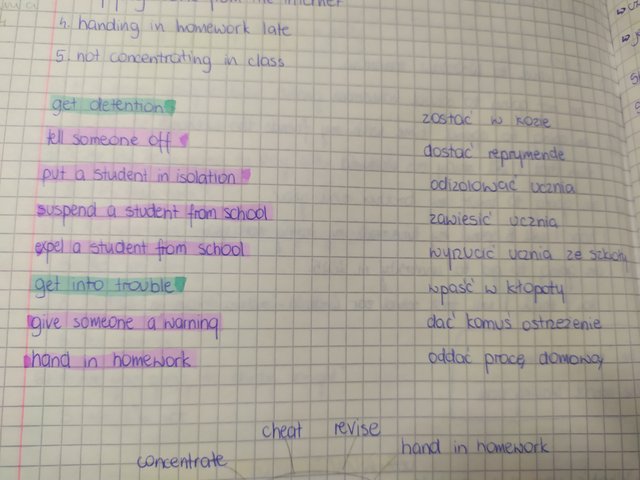 from the internet
4. handing in homework late
5. not concentrating in class
get detention zostać w kozie
tell someone off dostać reprymende
put a student in isolation odizolować ucznia
suspend a student from school zawiesić ucznia
expel a student from school wyrzucić ucznia ze szkoły
get into trouble wpaść w kłopoty
give someone a warning dać komuś ostrzeżenie
hand in homework oddać pracę domową
cheat revise
concentrate hand in homework